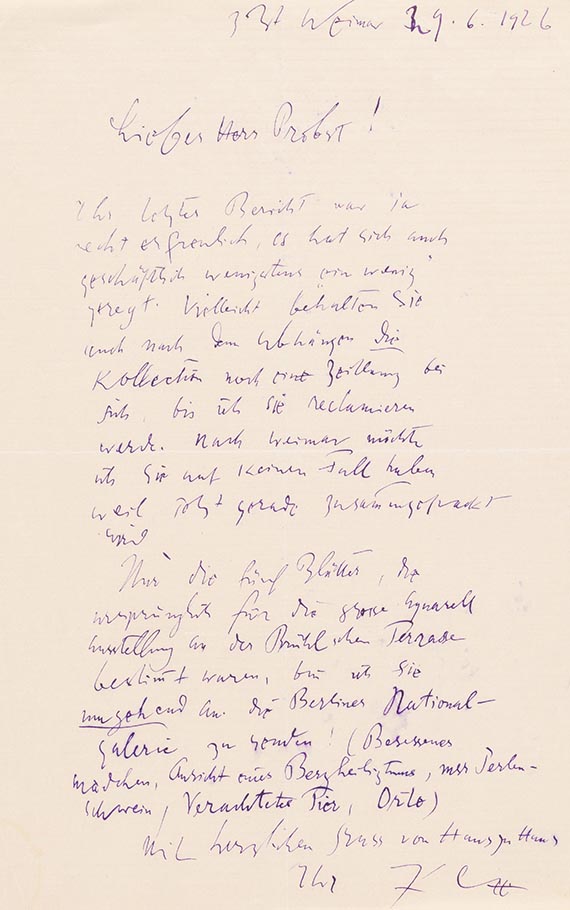 z Zt Weimar 29.6.1926
Lieber Herr Probst!
Ihr letzter Bericht war ja
recht erfreulich, es hat sich auch
geschäftlich wenigstens ein wenig
geregt. Vielleicht behalten Sie
auch nach dem Abhängen die
Kollection noch eine Zeitlang bei
sich, bis ich sie reclamieren
werde. Nach Weimar möchte
ich Sie auf keinen Fall haben
weil jetzt gerade zusammengepackt
wird
Nur die fünf Blätter, die
ursprünglich für die grosse Aquarell
Ausstellung an der Brühlschen Terrasse
bestimmt waren, bitte ich Sie
umgehend an die Berliner National-
galerie zu senden! (Besessenes
Mädchen, Ansicht eines Bergheiligtums, Perlen-
schwein, Verachtetes Tier, Orto)
Mit herzlichen Gruss von Haus zu Haus
Ihr